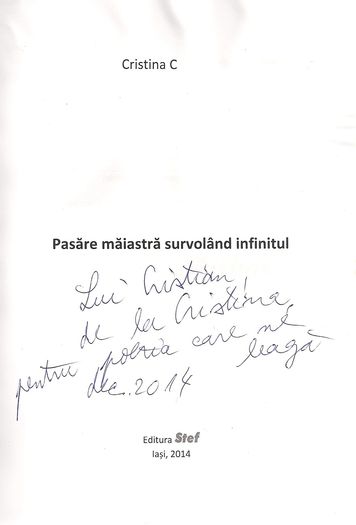 Cristina C
Pasăre măiastră survolând infinitul
Lui Cristian,
de la Cristina,
pentru poezia care ne leagă
dec. 2014
Editura Stef
Iași, 2014